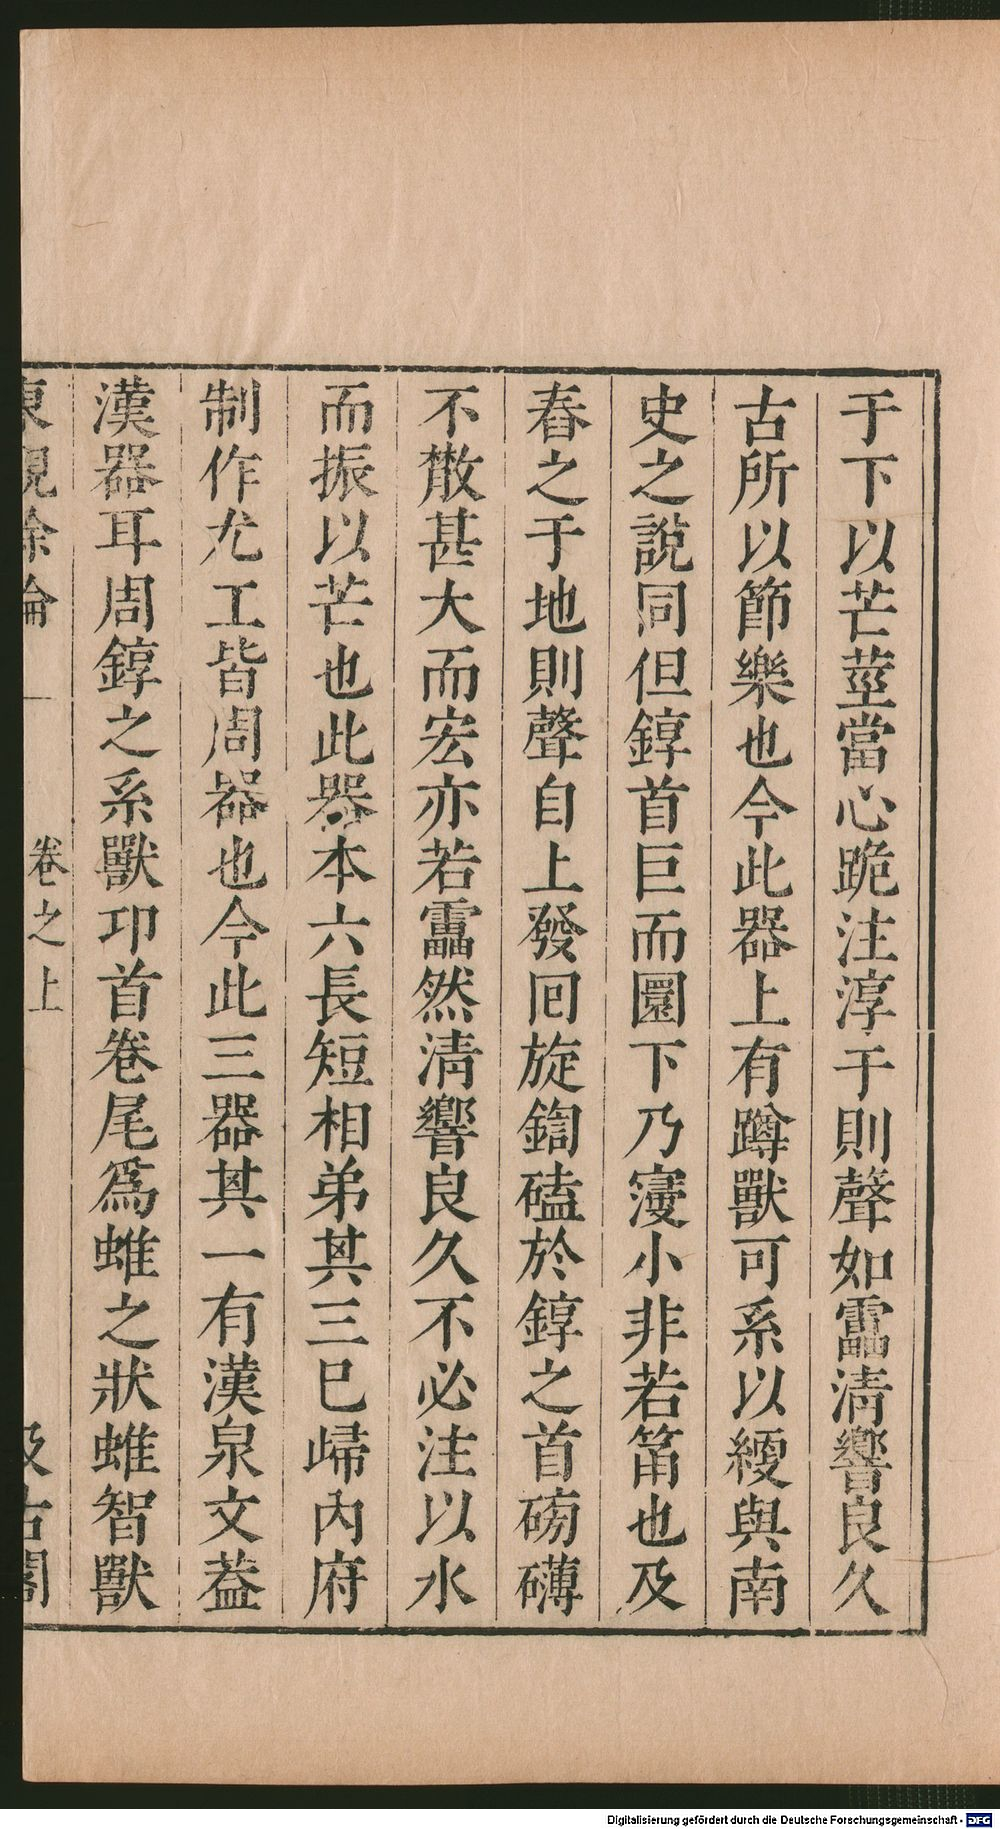 于下以芒莖當心跪注淳于則聲如靁清響良久
古所以節樂也今此器上有蹲獸可系以緩與南
史之說同但錞首巨而圜下乃寠小非若筩也及
舂之于地則聲自上發囘旋鍧磕於錞之首磅礴
不散甚大而宏亦若靁然清響良久不必注以水
而振以芒也此器本六長短相弟其三巳歸內府
制作尤工皆周器也今此三器其一有漢泉文葢
漢器耳周錞之系獸卬首卷尾爲蜼之狀蜼智獸
東觀余論 一 卷之上 汲古閣
Digitalisierung gefördert durch die Deutsche Forschungsgemeinschaft - DFG